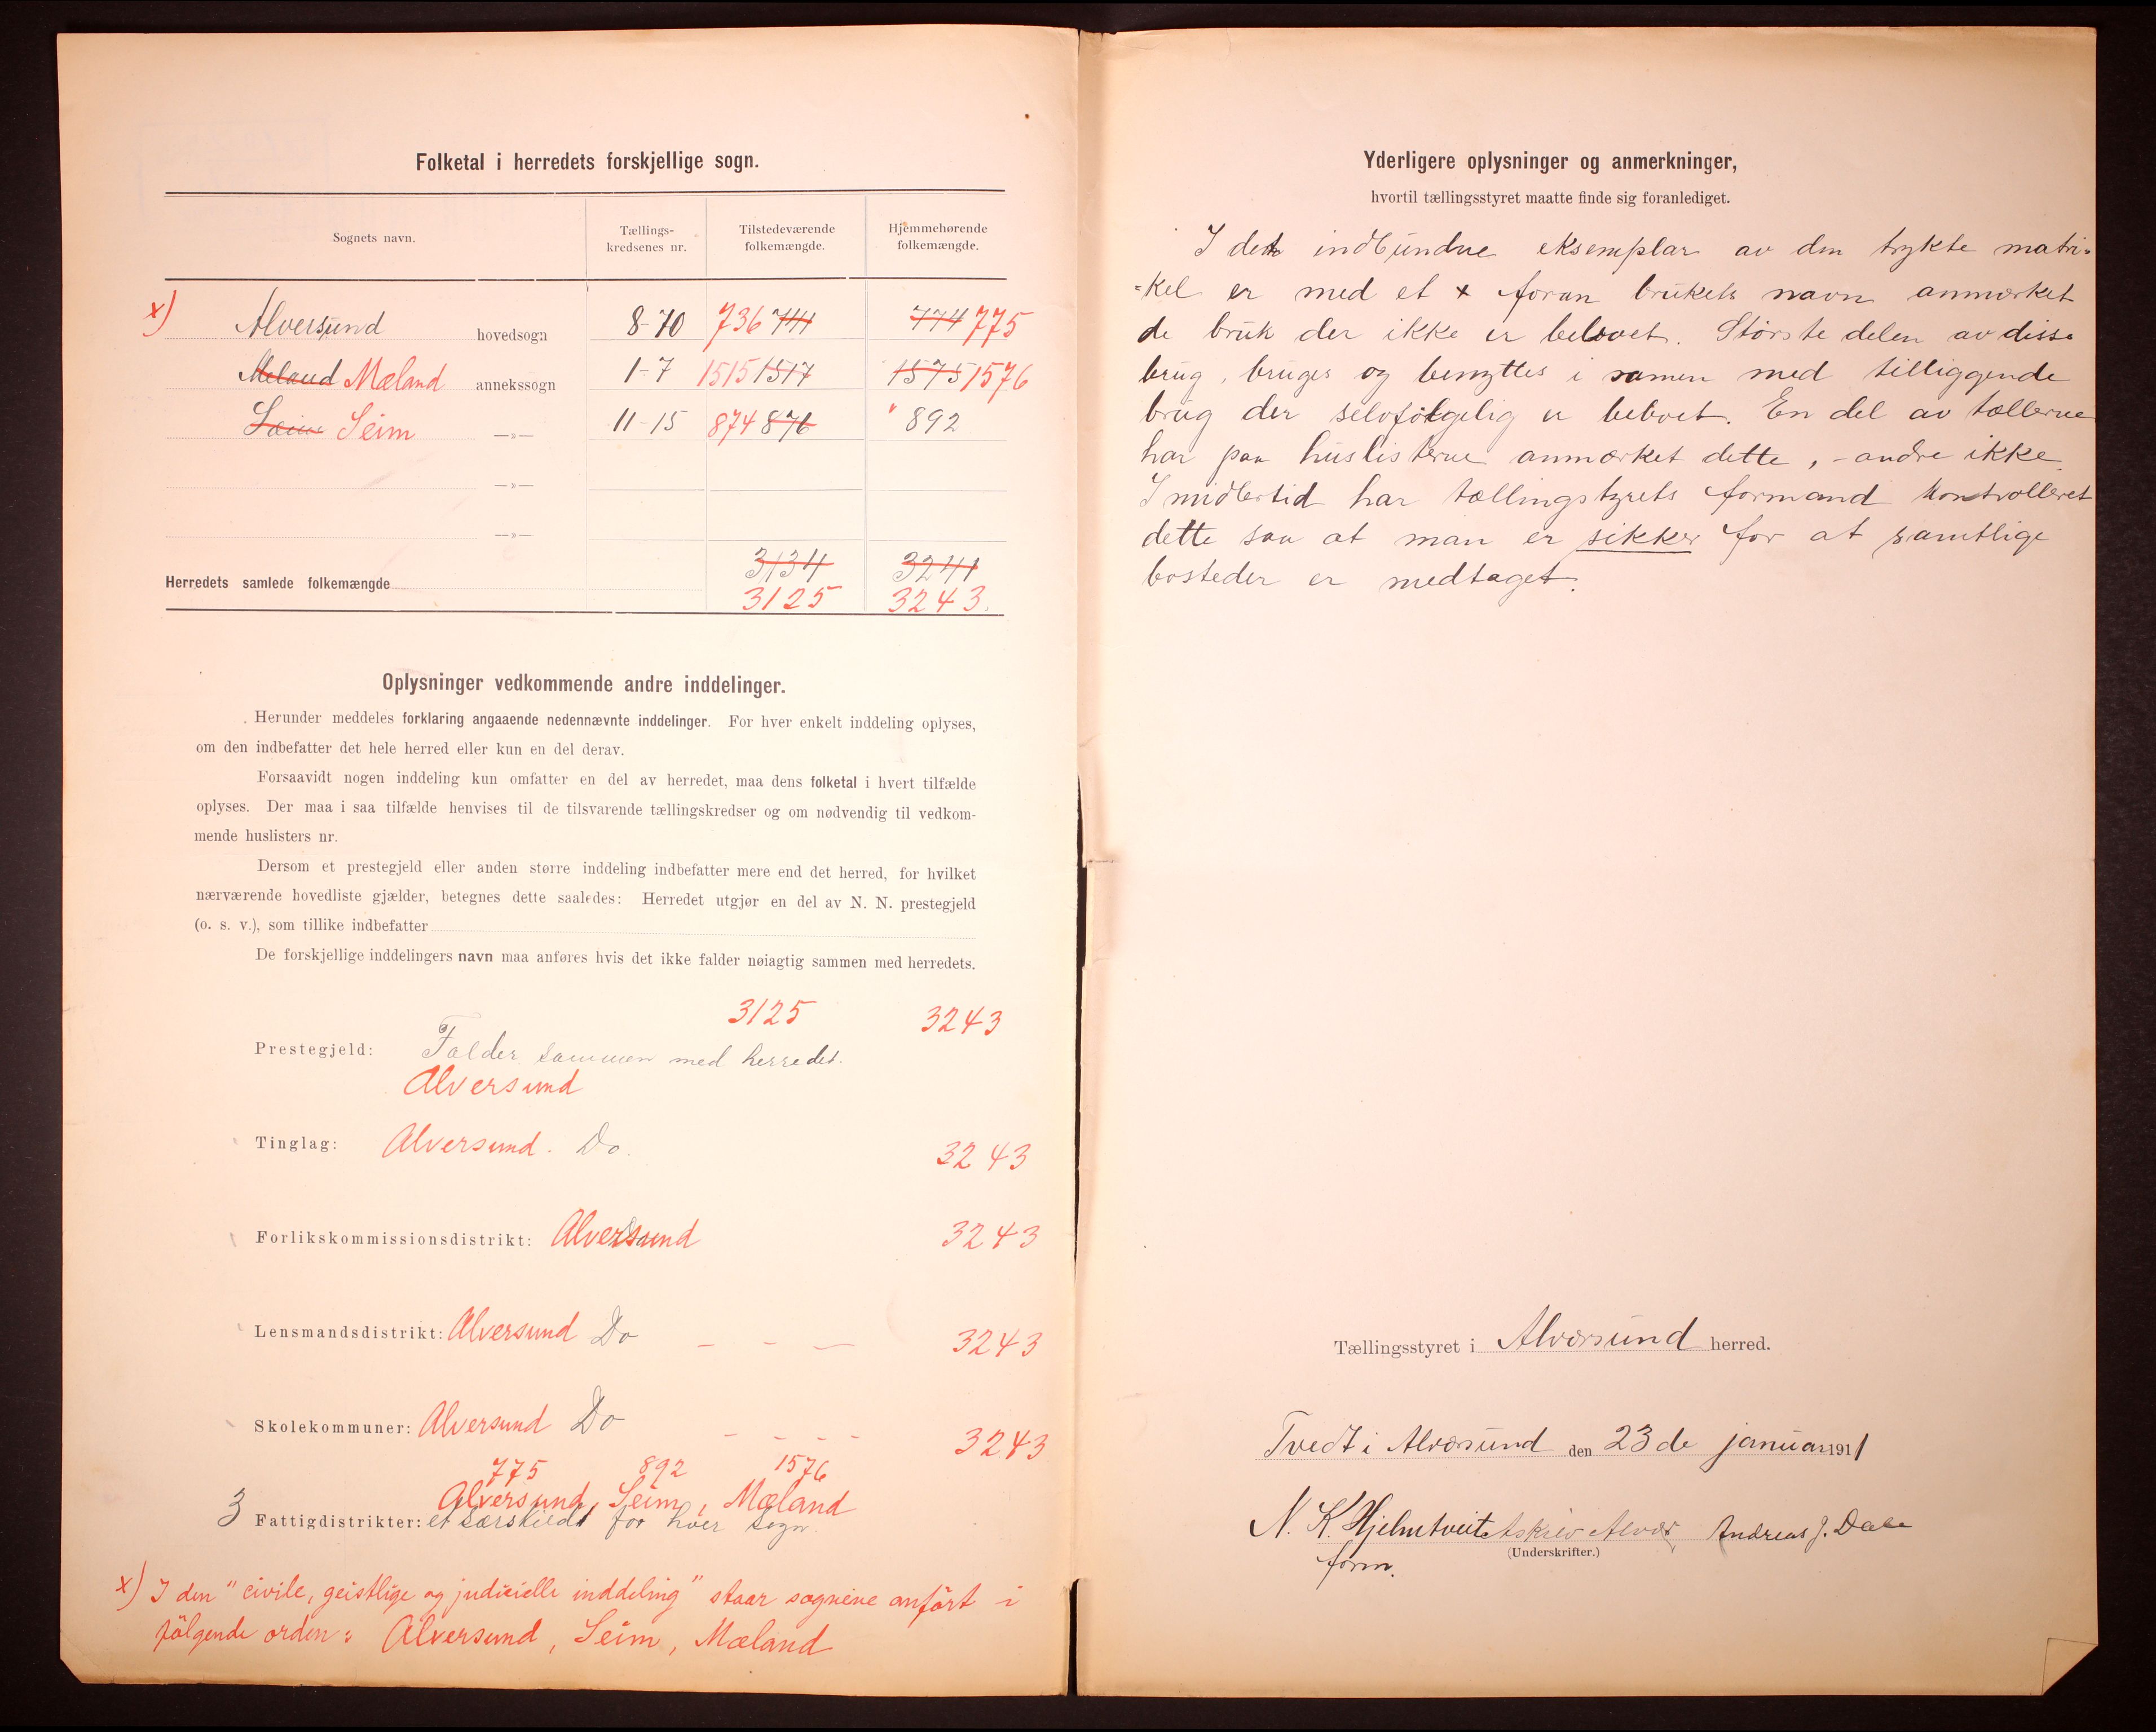 Folketal i herredets forskjellige sogn.
Sognets navn.
Tællings-
kredsenes nr.
Tilstedeværende
folkemængde.
Hjemmehørende
folkemængde.
x) Alversund hovedsogn 8-10 736 741 774 775
Meland Mæland annekssogn 1-7 1515 1517 1575 1576
Seim —»— 11-15 874 876 " 892
—»—
—»—
3134 3241
Herredets samlede folkemængde
3125 3243.
Oplysninger vedkommende andre inddelinger.
Herunder meddeles forklaring angaaende nedennævnte inddelinger. For hver enkelt inddeling oplyses,
om den indbefatter det hele herred eller kun en del derav.
Forsaavidt nogen inddeling kun omfatter en del av herredet, maa dens folketal i hvert tilfælde
oplyses. Der maa i saa tilfælde henvises til de tilsvarende tællingskredser og om nødvendig til vedkom-
mende huslisters nr.
Dersom et prestegjeld eller anden større inddeling indbefatter mere end det herred, for hvilket
nærværende hovedliste gjælder, betegnes dette saaledes: Herredet utgjør en del av N. N. prestegjeld
(o. s. v.), som tillike indbefatter
De forskjellige inddelingers navn maa anføres hvis det ikke falder nøiagtig sammen med herredets.
3125 3243
Prestegjeld: Falder sammen med herredet.
Alversund
Tinglag: Alversund. Do. 3243
Forlikskommissionsdistrikt: Alversund 3243
Lensmandsdistrikt: Alversund Do — - — 3243
Skolekommuner: Alversund Do - - - - 3243
775 892 1576
Alversund, Seim, Mæland
3 Fattigdistrikter: et særskildt for hver sogn.
x) I den "civile, geistlige og judicielle inddeling" staar sognene anført i
følgende orden: Alversund, Seim, Mæland
Yderligere oplysninger og anmerkninger,
hvortil tællingsstyret maatte finde sig foranlediget.
I det indbundne eksemplar av den trykte matri-
-kel er med et x foran brukets navn anmærket
de bruk der ikke er beboet. Største delen av disse
brug, bruges og benyttes i samen med tilliggende
brug der selvfølgelig er beboet. En del av tællerne
har paa huslisterne anmærket dette, - andre ikke.
Imidlertid har tællingstyrets formand kontrolleret
dette saa at man er sikker for at samtlige
bosteder er medtaget.
Tællingsstyret i Alversund herred.
Tvedt i Alversund den 23de januar 1911
N. K. Hjelmtveit Askild Alver Andreas J. Dale
form.
(Underskrifter.)